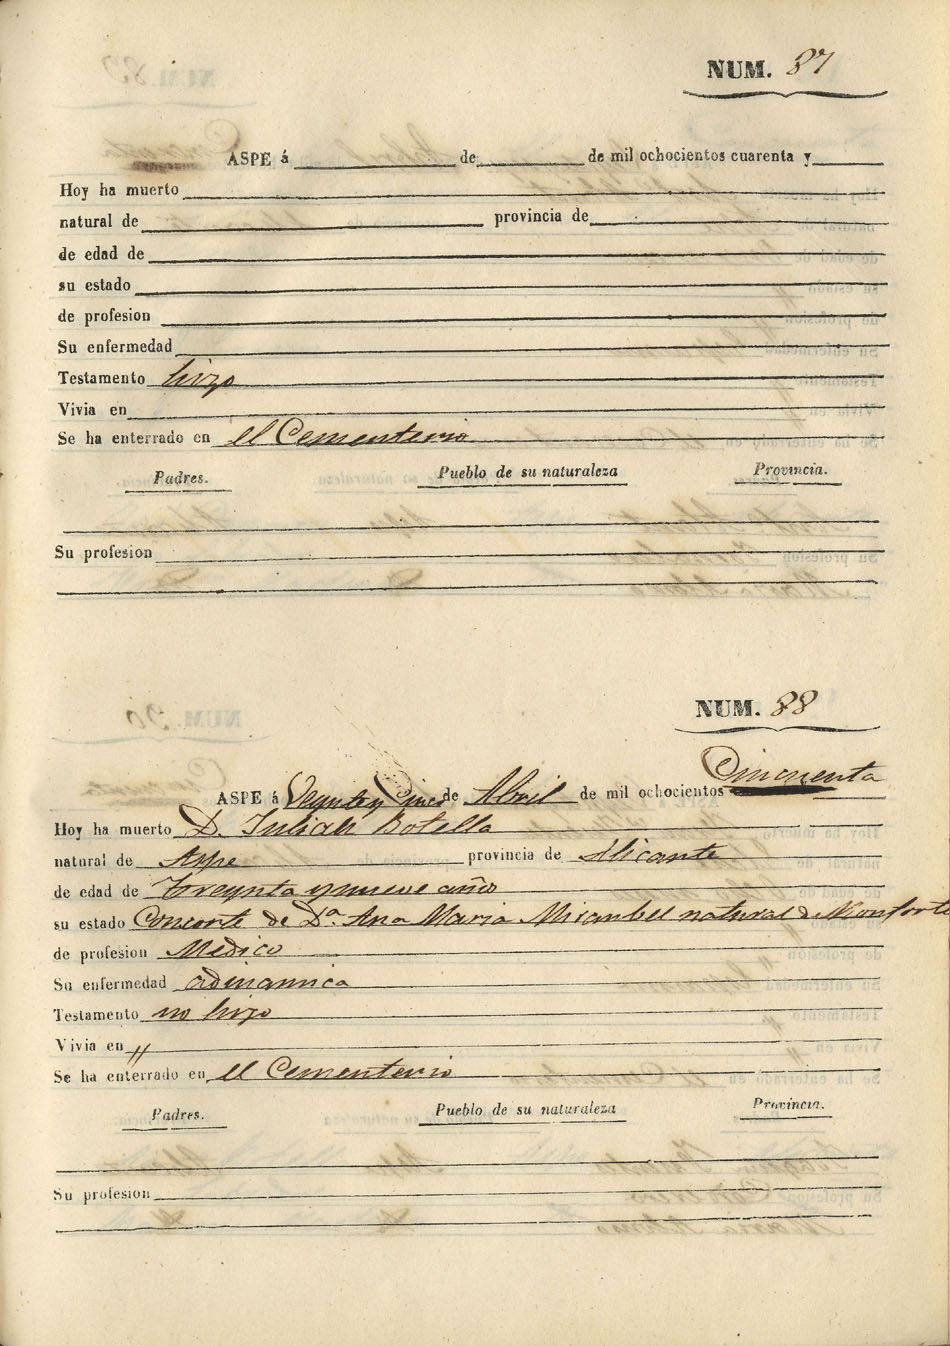 NUM. 87
ASPE á de de mil ochocientos cuarenta y
Hoy ha muerto
natural de provincia de
de edad de
su estado
de profesion
Su enfermedad
Testamento hizo
Vivia en
Se ha enterrado en el Cementerio
Padres. Pueblo de su naturaleza Provincia.
Su profesion
NUM. 88
Cincuenta
ASPE á Veynte y Cinco de Abril de mil ochocientos
Hoy ha muerto D. Julian Botella
natural de Aspe provincia de Alicante
de edad de treynta y nueve año
su estado Consorte de Dª Ana Maria Mirambel natural de Monforte
de profesion Medico
Su enfermedad adinamica
Testamento no hizo
Vivia en //
Se ha enterrado en el Cementerio
Padres. Pueblo de su naturaleza Provincia.
Su profesion